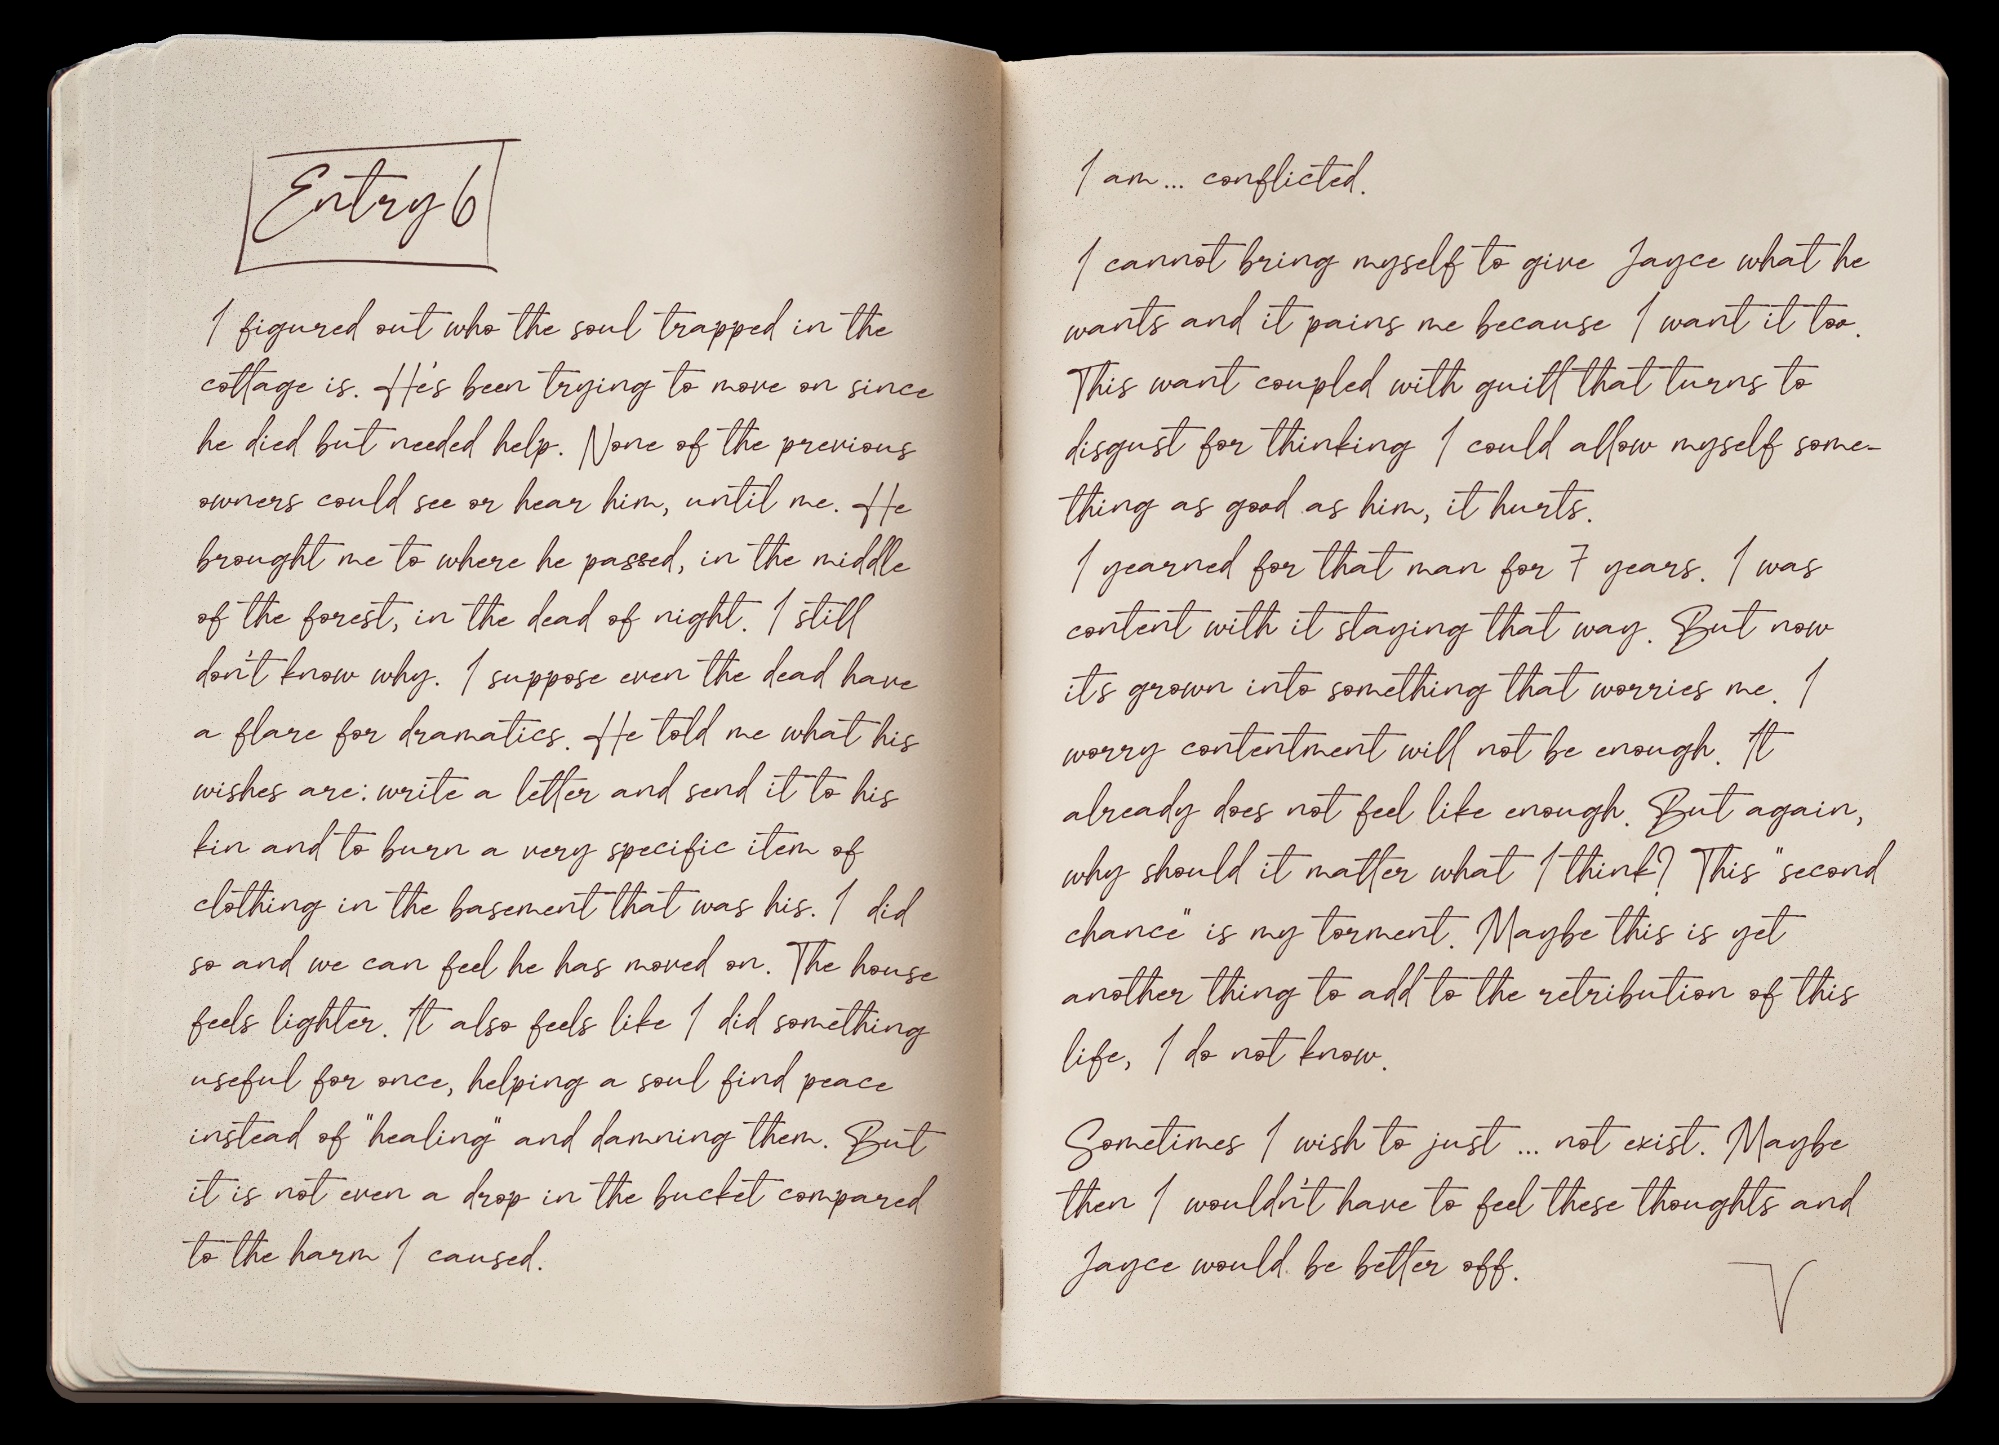 Entry 6
I figured out who the soul trapped in the
cottage is. He's been trying to move on since
he died but needed help. None of the previous
owners could see or hear him, until me. He
brought me to where he passed, in the middle
of the forest, in the dead of night. I still
don't know why. I suppose even the dead have
a flare for dramatics. He told me what his
wishes are: write a letter and send it to his
kin and to burn a very specific item of
clothing in the basement that was his. I did
so and we can feel he has moved on. The house
feels lighter. It also feels like I did something
useful for once, helping a soul find peace
instead of "healing" and damning them. But
it is not even a drop in the bucket compared
to the harm I caused.
I am... conflicted.
I cannot bring myself to give Jayce what he
wants and it pains me because I want it too.
This want coupled with guilt that turns to
disgust for thinking I could allow myself some-
thing as good as him, it hurts.
I yearned for that man for 7 years. I was
content with it staying that way. But now
it's grown into something that worries me. I
worry contentment will not be enough. It
already does not feel like enough. But again,
why should it matter what I think? This "second
chance" is my torment. Maybe this is yet
another thing to add to the retribution of this
life, I do not know.
Sometimes I wish to just ... not exist. Maybe
then I wouldn't have to feel these thoughts and
Jayce would be better off.
V